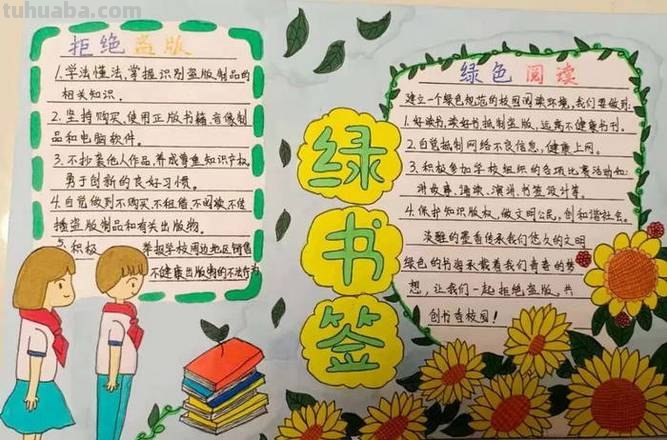 tuhuaba.com
拒绝盗版
1.学法懂法,掌握识别盗版制品的
相关知识。
2.坚持购买、使用正版书籍、音像制
品和电脑软件。
3.不抄袭他人作品,养成尊重知识产权,
勇于创新的良好习惯。
4.自觉做到不购买、不租借、不阅读、不传
播盗版制品和有关出版物。
5.积极 举报学校周边地区销售
不健康出版物的不法行为
绿书签
绿色阅读
建立一个绿色规范的校园阅读环境,我们要做到:
1.好读书,读好书,抵制盗版,远离不健康书刊。
2.自觉抵制网络不良信息,健康上网。
3.积极参加学校组织的各项比赛活动如:
讲故事、诵读、演讲、书签设计等。
4.保护知识版权,做文明公民,创和谐社会。
淡雅的墨香传承我们悠久的文明
绿色的书海承载着我们青春的梦
想,让我们一起拒绝盗版,共
创书香校园!